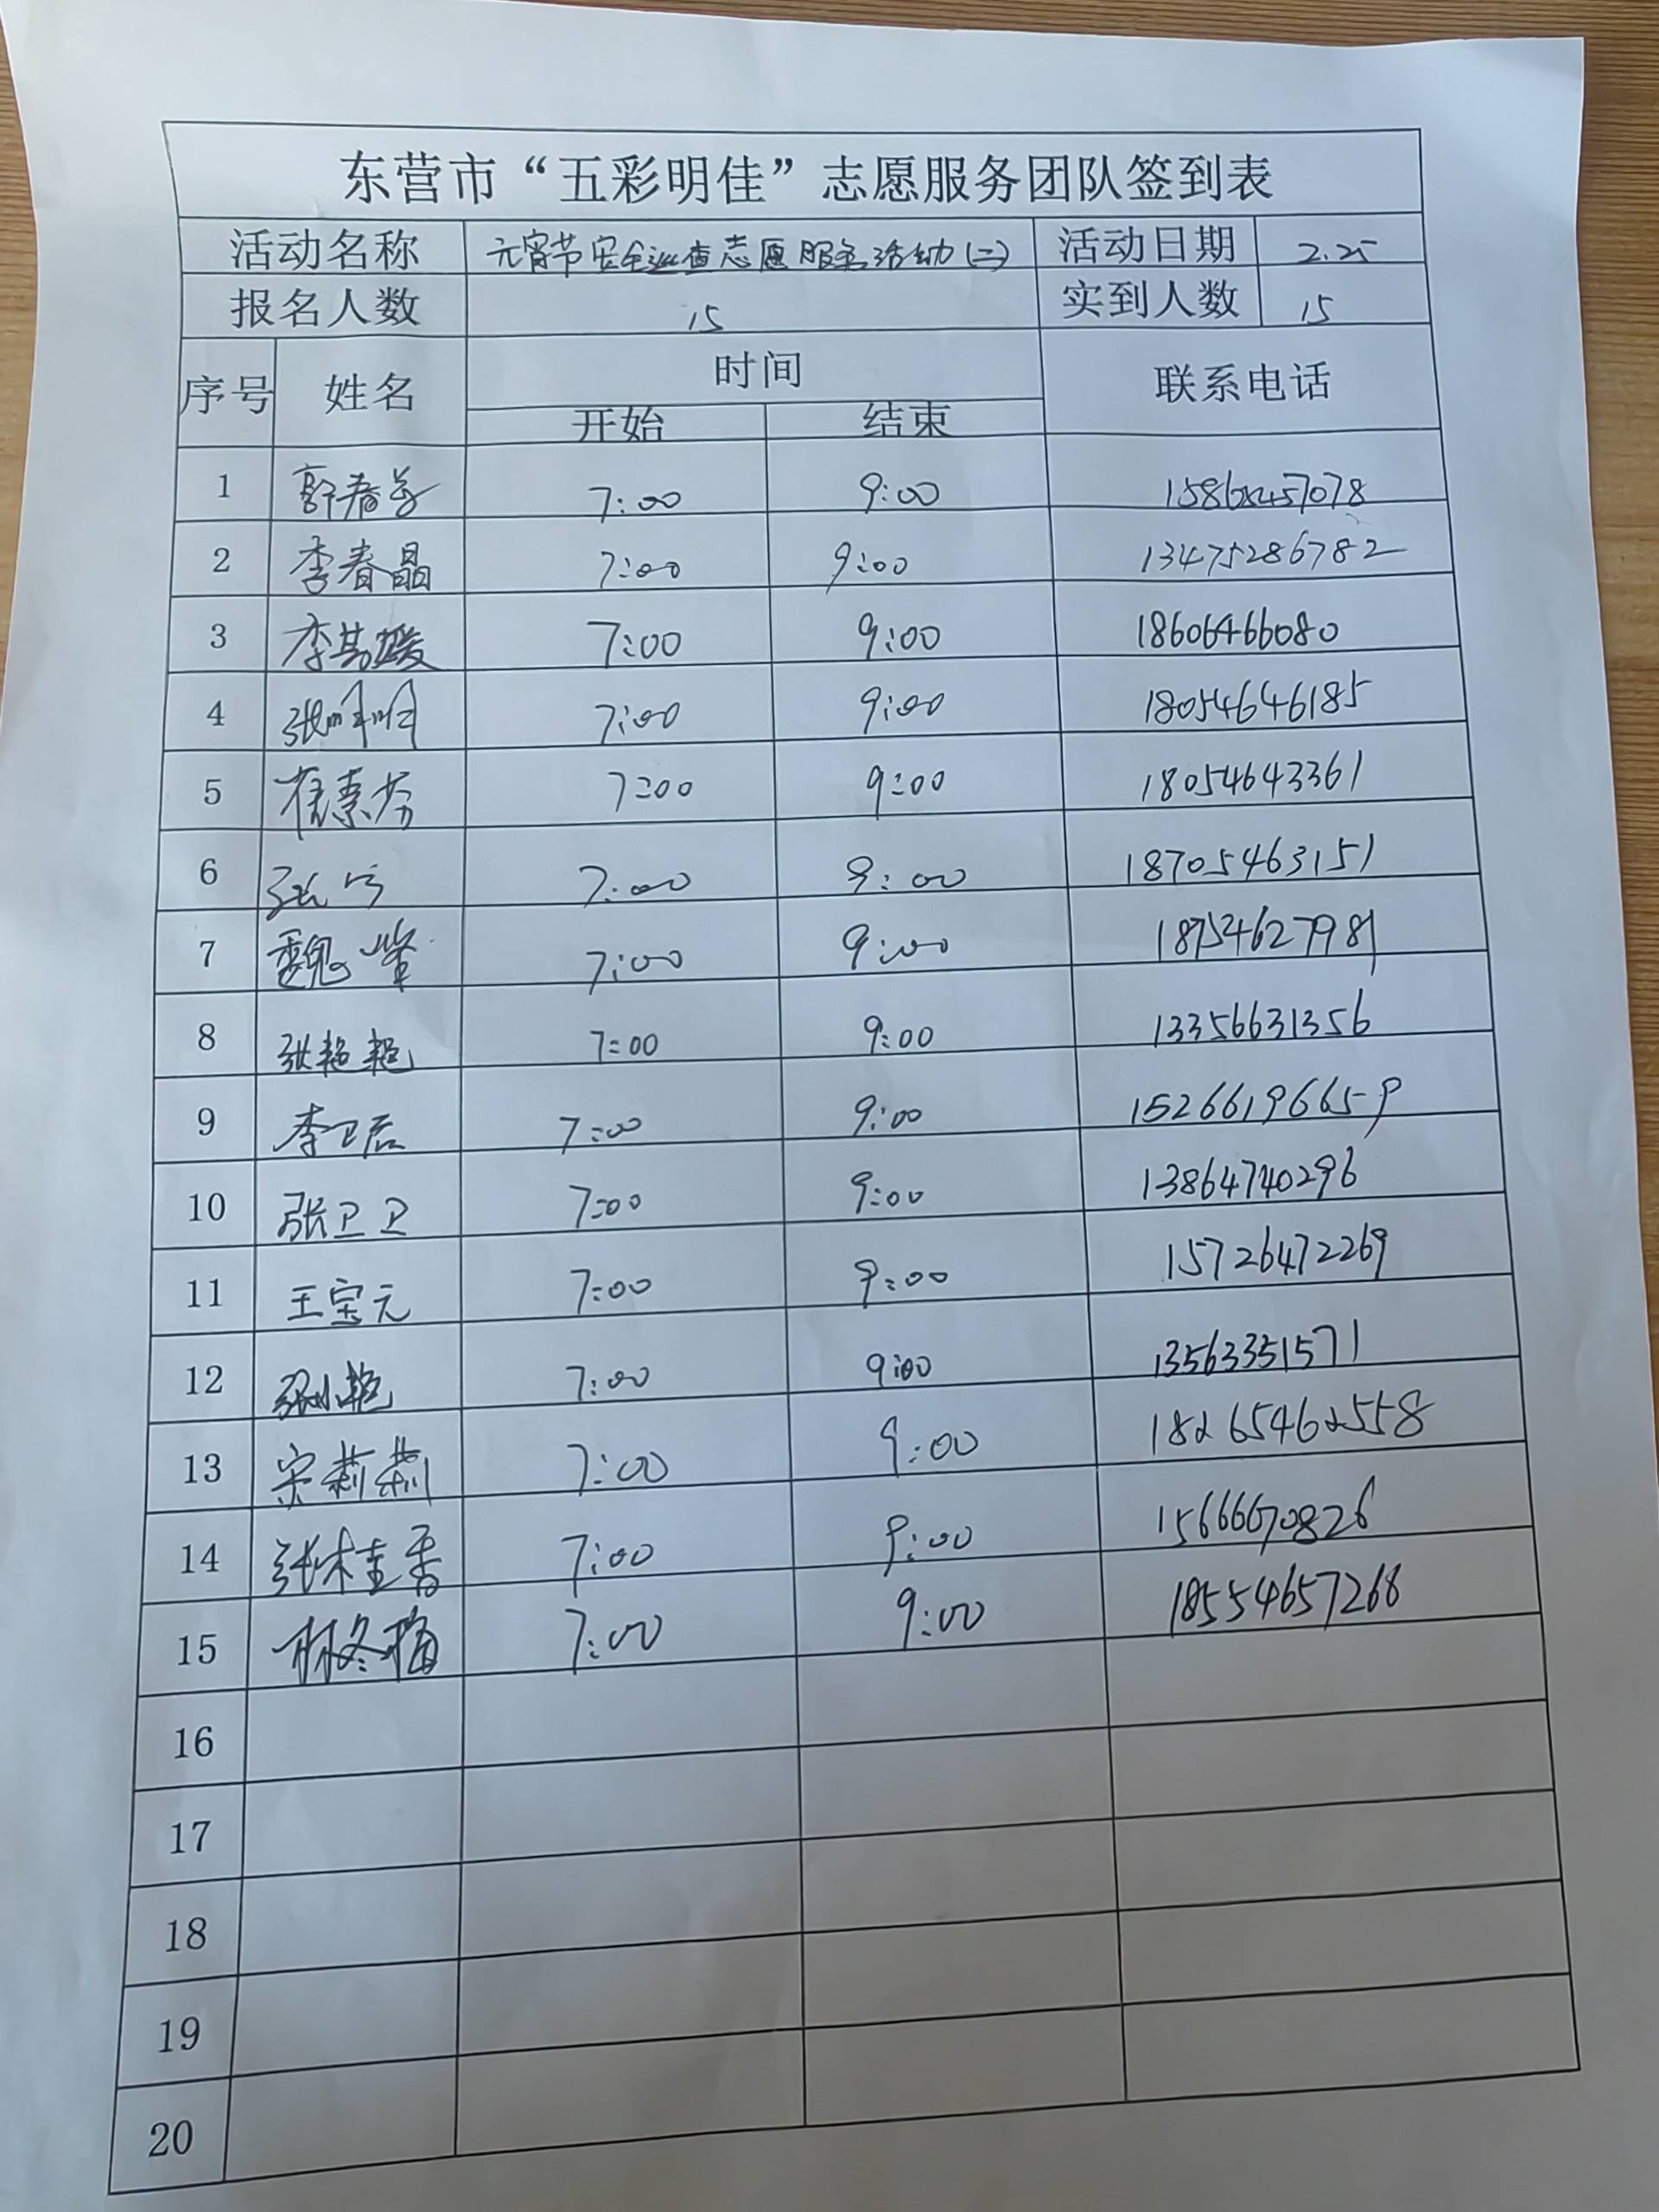 东营市“五彩明佳”志愿服务团队签到表
活动名称 元宵节安全巡查志愿服务活动(二) 活动日期 2.25
报名人数 15 实到人数 15
序号 姓名 时间 联系电话
开始 结束
1 7:00 9:00
2 李春晶 7:00 9:00 13475286782
3 7:00 9:00 18606466080
4 7:00 9:00 18054646185
5 崔素芬 7:00 9:00 18054643361
6 7:00 9:00 18705463151
7 7:00 9:00 18754627981
8 张艳艳 7:00 9:00 13356631356
9 7:00 9:00 15266196659
10 张卫卫 7:00 9:00 13864740296
11 王宝元 7:00 9:00 15726472269
12 张小艳 7:00 9:00 13563351571
13 宋莉莉 7:00 9:00 18265462558
14 7:00 9:00 15666670826
15 林冬梅 7:00 9:00 18554657268
16
17
18
19
20